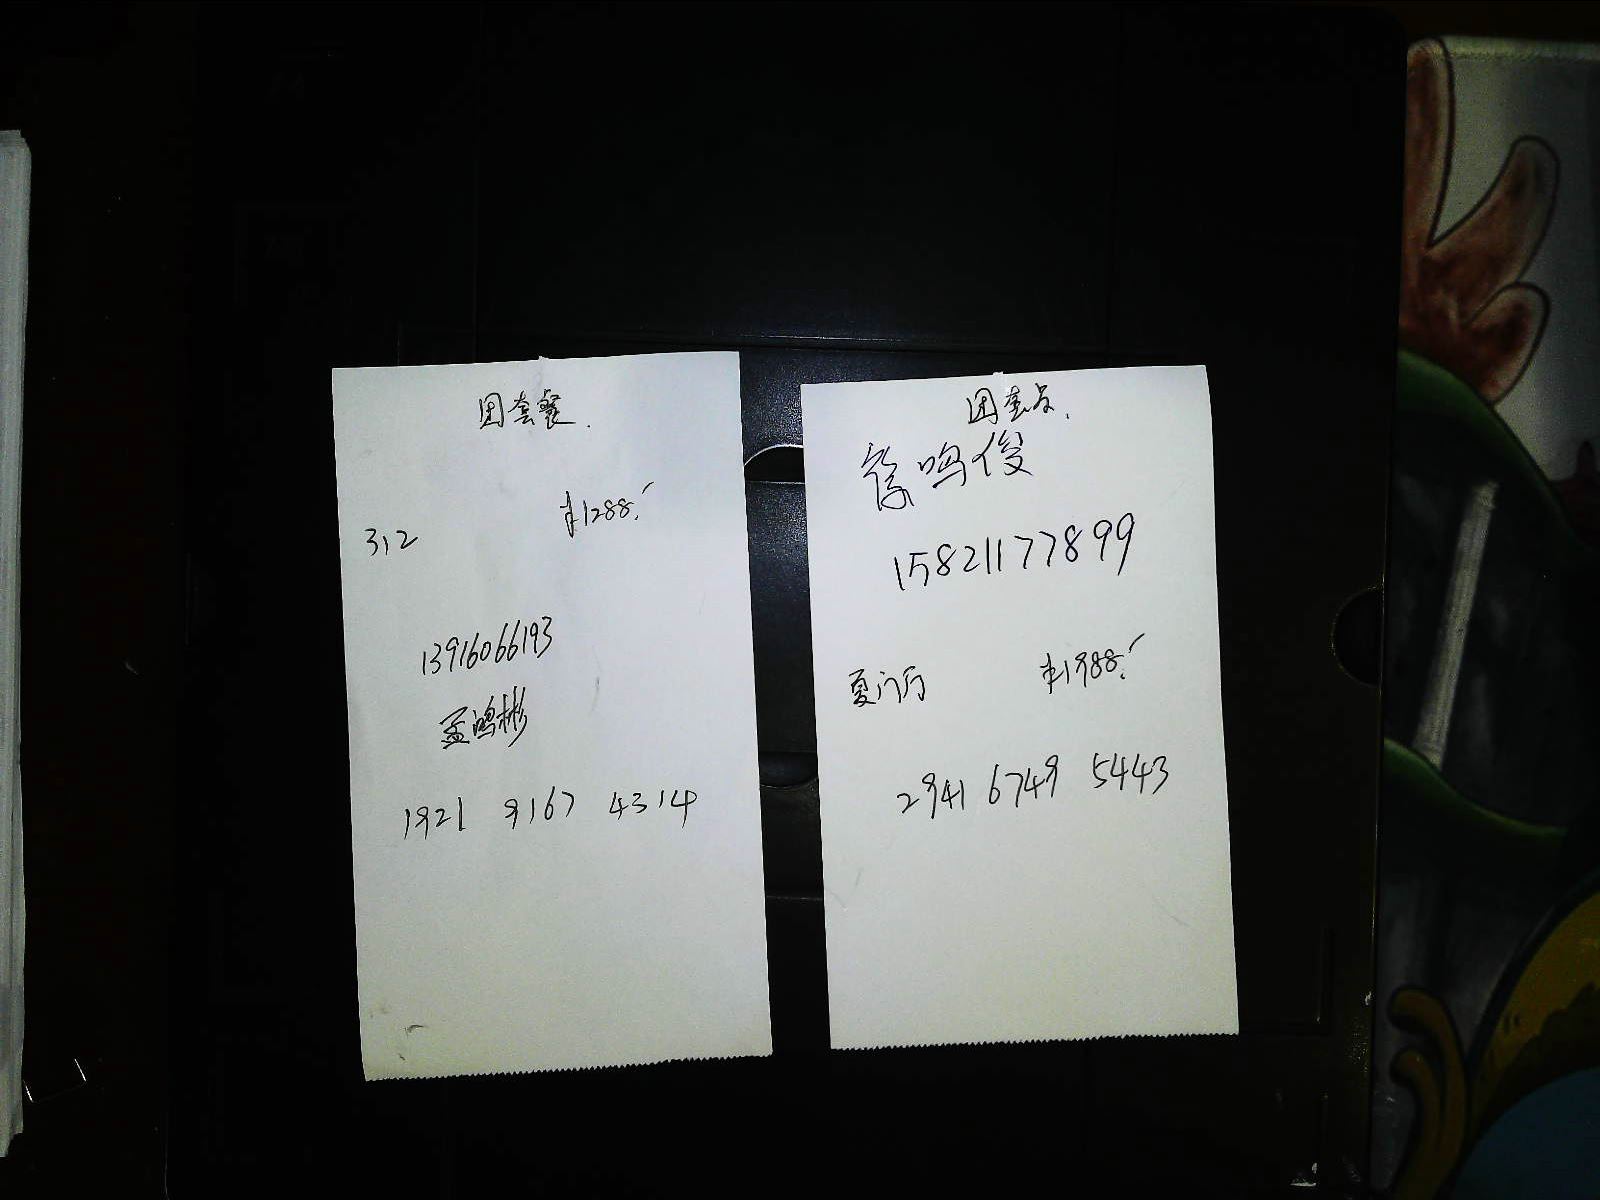 团套餐.
¥1288.-
312
13916066193
孟鸿彬
1921 9167 4314
团套餐.
徐鸣俊
15821177899
夏门厅 ¥1988.-
2941 6749 5443